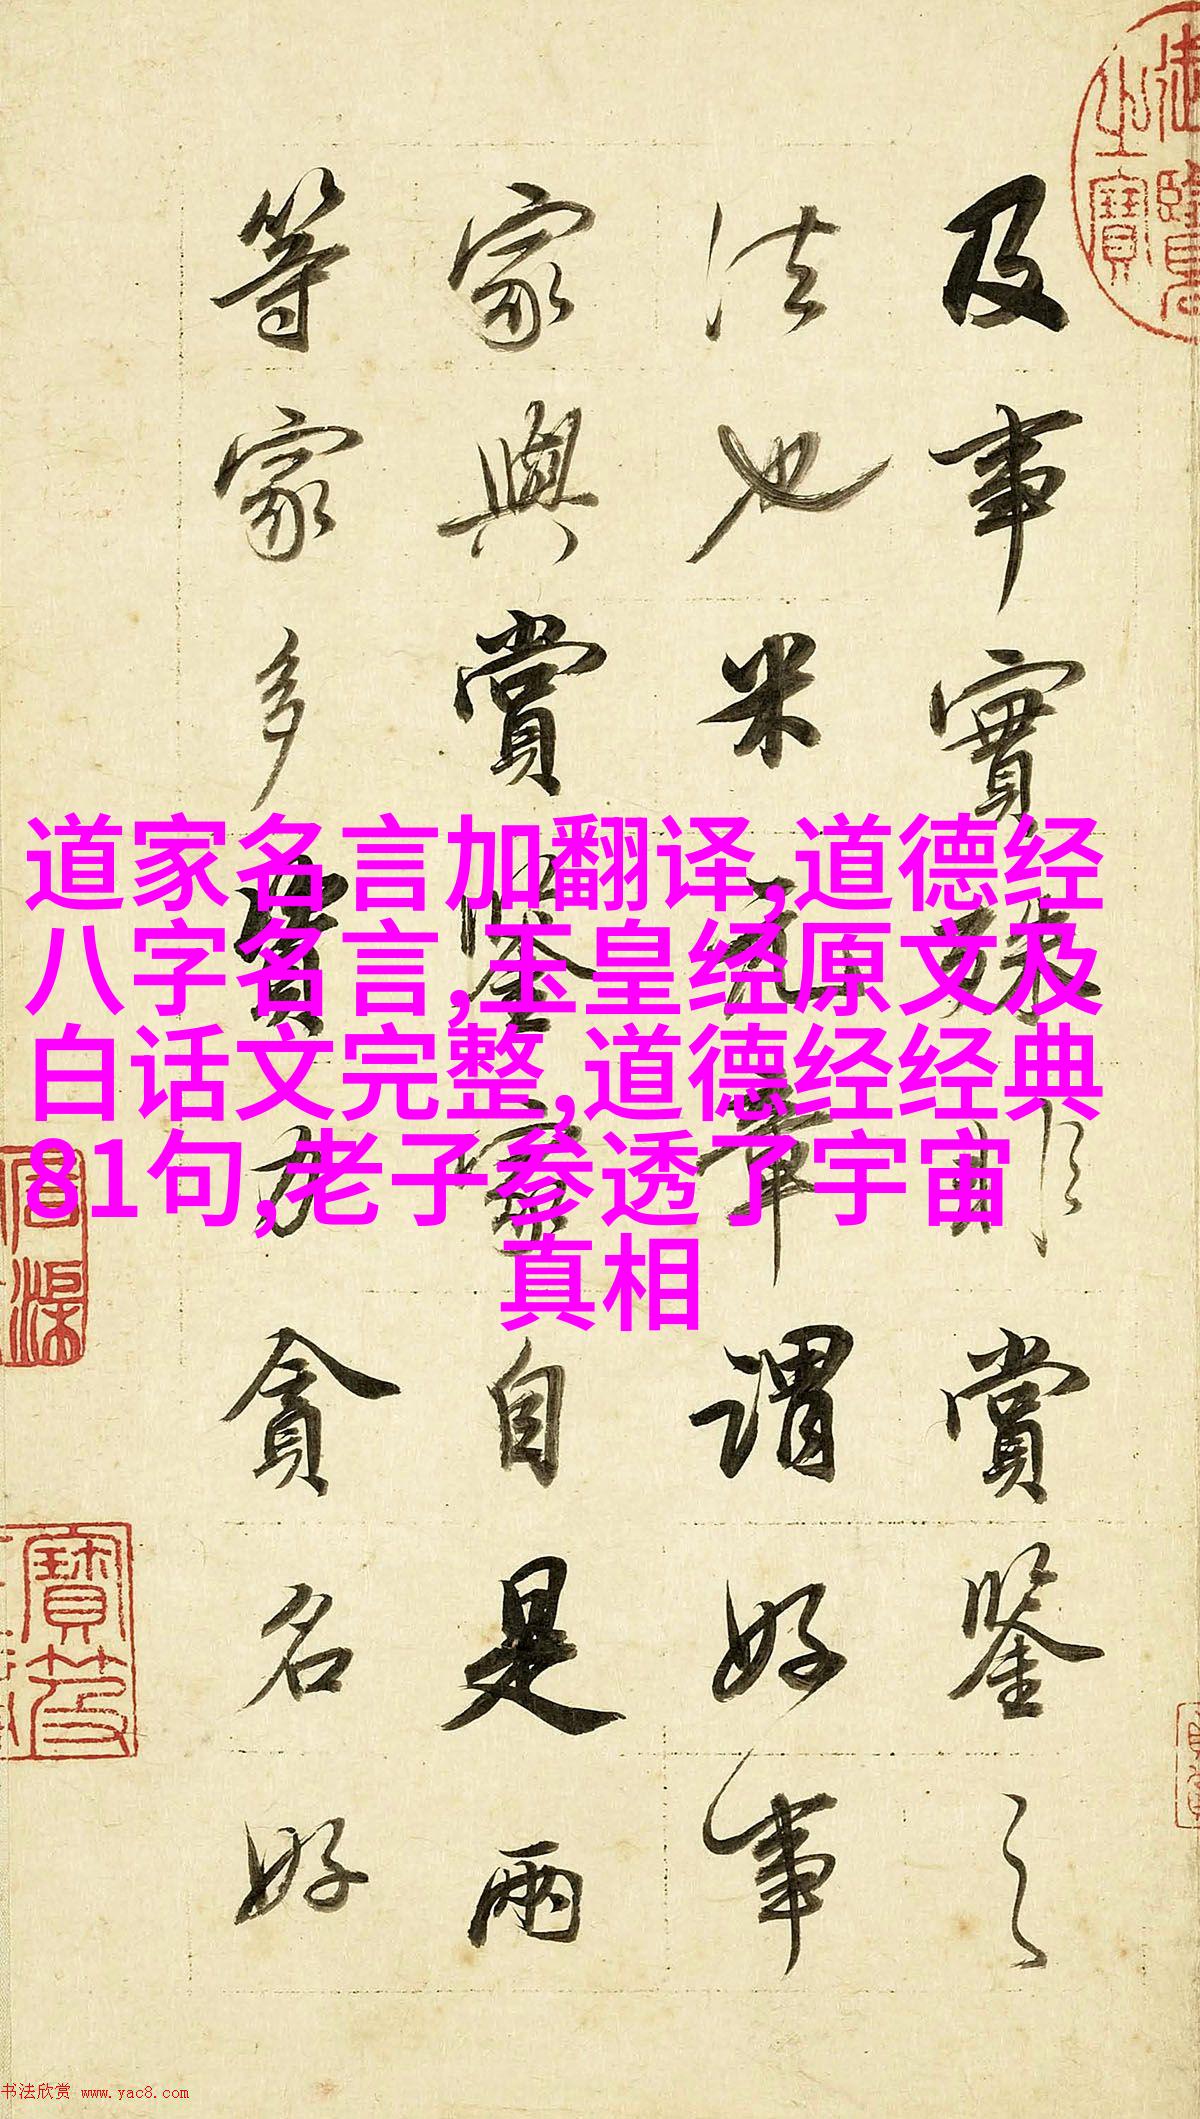 及事實殊□賞鑒之
法也米元章謂好事
家與賞鑒家自是兩
等家多資力貪名好
道家名言加翻译,道德经
八字名言,玉皇经原文及
白话文完整,道德经经典
81句,老子参透了宇宙
真相
御書之寶
書法欣赏 www.yac8.com